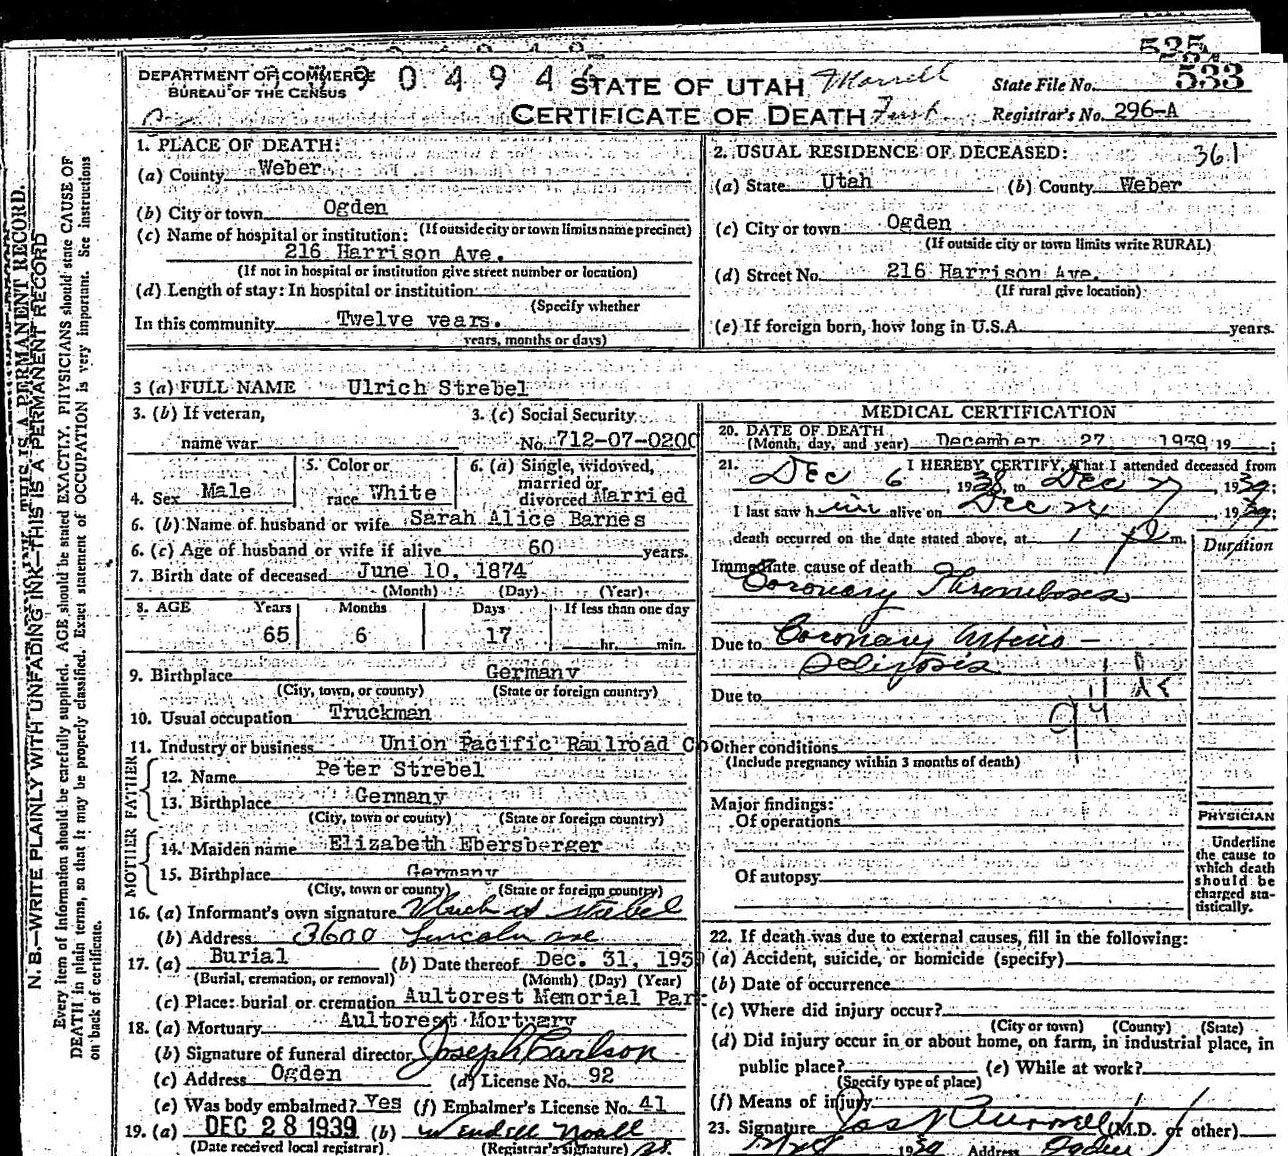 535
533
904940
DEPARTMENT OF COMMERCE
BUREAU OF THE CENSUS
STATE OF UTAH
CERTIFICATE OF DEATH
State File No.
Registrar's No. 296-A
1. PLACE OF DEATH:
(a) County Weber
(b) City or town Ogden
(If outside city or town limits name precinct)
(c) Name of hospital or institution:
216 Harrison Ave.
(If not in hospital or institution give street number or location)
(d) Length of stay: In hospital or institution
(Specify whether
In this community Twelve years.
years, months or days)
2. USUAL RESIDENCE OF DECEASED: 361
(a) State Utah (b) County Weber
(c) City or town Ogden
(If outside city or town limits write RURAL)
(d) Street No. 216 Harrison Ave.
(If rural give location)
(e) If foreign born, how long in U.S.A. years.
3 (a) FULL NAME Ulrich Strebel
3. (b) If veteran, 3. (c) Social Security
name war No. 712-07-0200
4. Sex Male
5. Color or race White
6. (a) Single, widowed, married or divorced Married
6. (b) Name of husband or wife Sarah Alice Barnes
6. (c) Age of husband or wife if alive 60 years.
7. Birth date of deceased June 10, 1874
(Month) (Day) (Year)
8. AGE Years Months Days If less than one day
65 6 17 hr. min.
9. Birthplace Germany
(City, town, or county) (State or foreign country)
10. Usual occupation Truckman
11. Industry or business Union Pacific Railroad Co
FATHER
12. Name Peter Strebel
13. Birthplace Germany
(City, town or county) (State or foreign country)
MOTHER
14. Maiden name Elizabeth Ebersberger
15. Birthplace Germany
(City, town or county) (State or foreign country)
16. (a) Informant's own signature Strebel
(b) Address 3600 Lincoln ave
17. (a) Burial (b) Date thereof Dec. 31, 193
(Burial, cremation, or removal) (Month) (Day) (Year)
(c) Place: burial or cremation Aultorest Memorial Park
18. (a) Mortuary Aultorest Mortuary
(b) Signature of funeral director Joseph Carlson
(c) Address Ogden (d) License No. 92
(e) Was body embalmed? Yes (f) Embalmer's License No. 41
19. (a) DEC 28 1939 (b) Wendell Noall
(Date received local registrar) (Registrar's signature)
MEDICAL CERTIFICATION
20. DATE OF DEATH
(Month, day, and year) December 27 1939 19 ;
21. I HEREBY CERTIFY, That I attended deceased from
Dec 6, 1938, to Dec 27, 1939;
I last saw him alive on Dec 24, 1939;
death occurred on the date stated above, at 1 p m.
Duration
Immediate cause of death
Coronary Thrombosis
Due to Coronary Arterio-
Sclerosis
Due to
94
Other conditions
(Include pregnancy within 3 months of death)
Major findings:
Of operations
Of autopsy
PHYSICIAN
Underline
the cause to
which death
should be
charged sta-
tistically.
22. If death was due to external causes, fill in the following:
(a) Accident, suicide, or homicide (specify)
(b) Date of occurrence
(c) Where did injury occur?
(City or town) (County) (State)
(d) Did injury occur in or about home, on farm, in industrial place, in
public place? (e) While at work?
(Specify type of place)
(f) Means of injury
23. Signature (M.D. or other)
1939 Address Ogden
N. B.—WRITE PLAINLY WITH UNFADING INK—THIS IS A PERMANENT RECORD
Every item of information should be carefully supplied. AGE should be stated EXACTLY. PHYSICIANS should state CAUSE OF
DEATH in plain terms, so that it may be properly classified. Exact statement of OCCUPATION is very important. See instructions
on back of certificate.